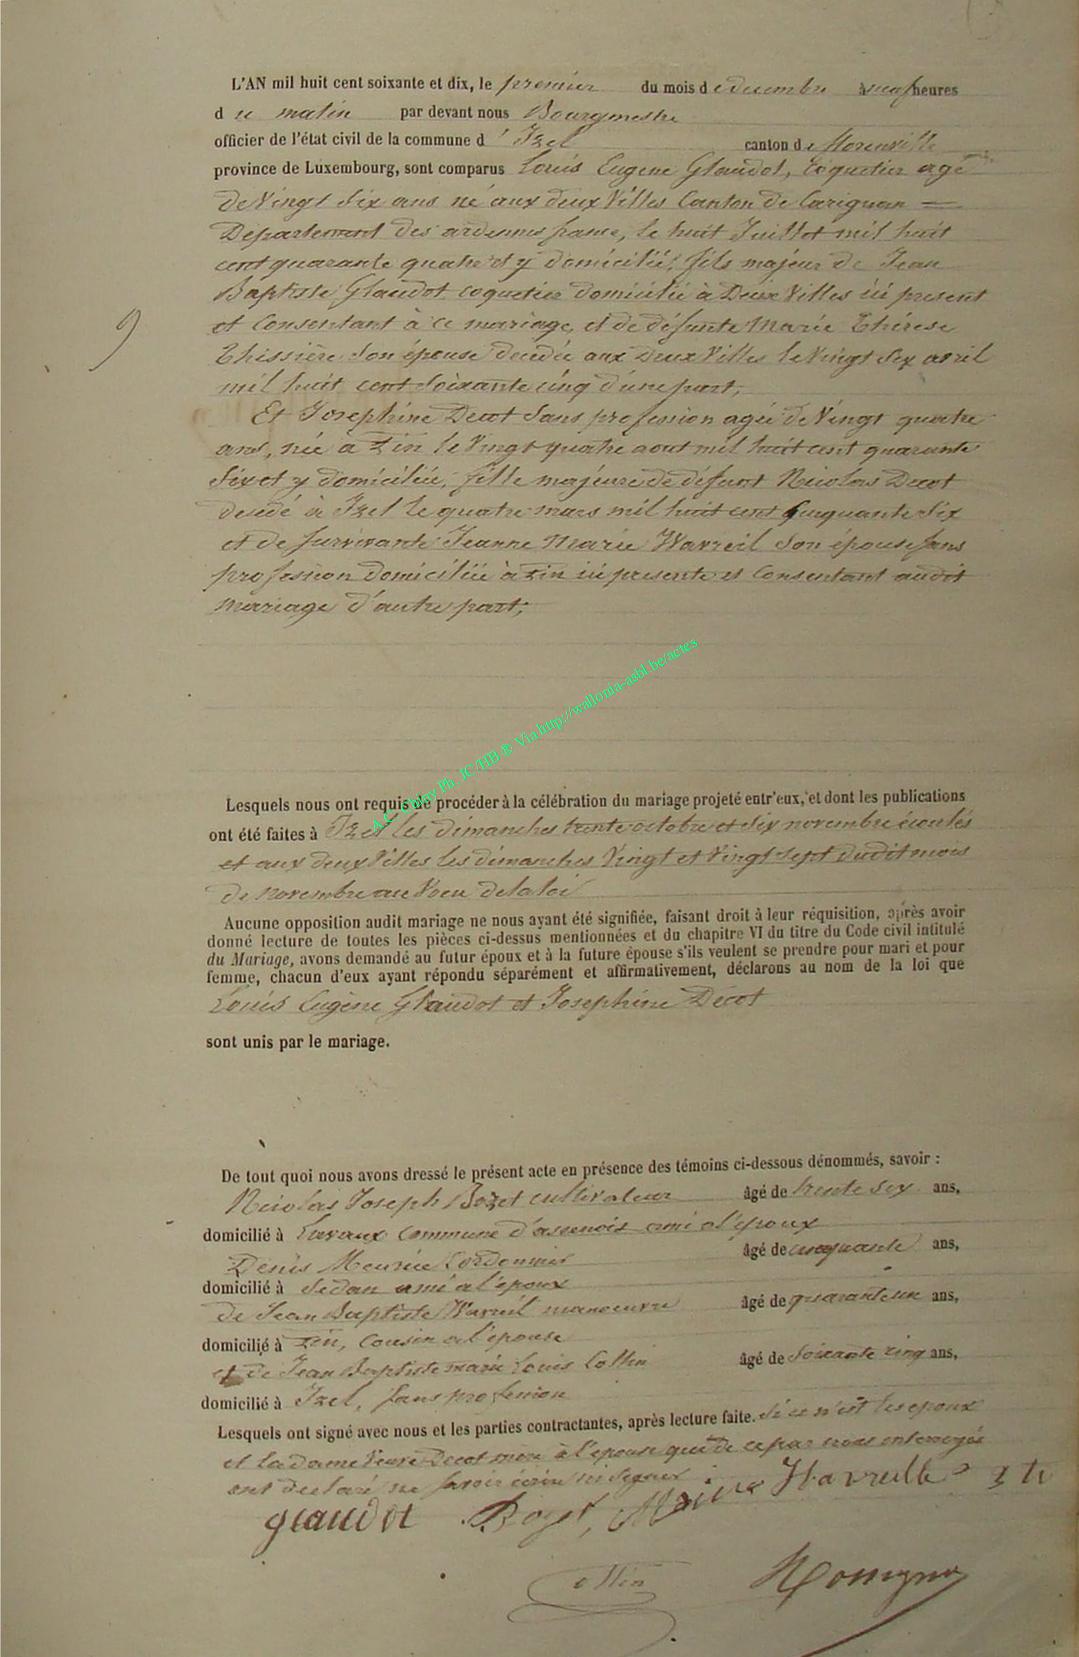 L'AN mil huit cent soixante et dix, le premier du mois de decembre à neuf heures
d u matin par devant nous Bourgmestre
officier de l'état civil de la commune d' Izel canton de Florenville
province de Luxembourg, sont comparus Louis Eugene Glaudot, Coquetier agé
de Vingt Six ans né aux deux Villes Canton de Carignan =
Departement des ardennes france, le huit Juillet mil huit
cent quarante quatre et y domicilié, fils majeur de Jean
Baptiste Glaudot coquetier domicilié à Deux Villes ici present
et Consentant à ce mariage, et de défunte Marie Thérese
Thissière Son épouse decedée aux Deux Villes le Vingt Six avril
mil huit cent Soixante cinq d'une part,
9
Et Josephine Decot Sans profession agée de Vingt quatre
ans, née a Pin le Vingt quatre aout mil huit cent quarante
Six et y domiciliée, fille majeure de défunt Nicolas Decot
decedé à Izel le quatre mars mil huit cent Cinquante Six
et de Survivante Jeanne Marie Wavreil Son épouse sans
profession domiciliée à Pin ici presente et Consentant audit
mariage d'autre part;
A.C. Chiny Ph. JC HB & Via http://wallonia-asbl.be/actes
Lesquels nous ont requis de procéder à la célébration du mariage projeté entr'eux, et dont les publications
ont été faites à Izel les dimanches trente octobre et Six novembre écoulés
et aux deux Villes les dimanches Vingt et Vingt Sept dudit mois
de novembre au Voeu de la loi
Aucune opposition audit mariage ne nous ayant été signifiée, faisant droit à leur réquisition, après avoir
donné lecture de toutes les pièces ci-dessus mentionnées et du chapitre VI du titre du Code civil intitulé
du Mariage, avons demandé au futur époux et à la future épouse s'ils veulent se prendre pour mari et pour
femme, chacun d'eux ayant répondu séparément et affirmativement, déclarons au nom de la loi que
Louis Eugène Glaudot et Josephine Décot
sont unis par le mariage.
De tout quoi nous avons dressé le présent acte en présence des témoins ci-dessous dénommés, savoir :
Nicolas Joseph Bozet cultivateur âgé de trente Six ans,
domicilié à Lavaux Commune d'assenois ami à l'époux
Denis Meunie Cordonnier âgé de cinquante ans,
domicilié à Sedan ami a l'époux
de Jean Baptiste Wavreil manoeuvre âgé de quarante un ans,
domicilié à Pin, Cousin a l'épouse
et de Jean Baptiste marie Louis Collin âgé de Soixante cinq ans,
domicilié à Izel, Sans profession
Lesquels ont signé avec nous et les parties contractantes, après lecture faite. Si ce n'est les epoux
et la dame Veuve Decot mère à l'épouse qui de ce par nous interrogés
ont declaré ne savoir écrire ni Signer
glaudot Bozet, Wavreille
Rossignon